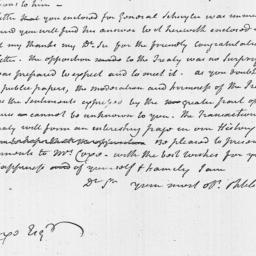 ions to him —
that you enclosed for General Schuyler was imme
and you will find his answer to it herewith enclosed
my thanks my Dr. Sir for the friendly congratulat
. The opposition made to the Treaty was no surpris
was prepared to expect and to meet it. as you doubt
public papers, the moderation and firmness of the Pre
the sentiments expressed by the greater part of
cannot be unknown to you. The Transaction
will form an interesting page in our History
Be pleased to presen
ments to Mrs. Coxo. with the best wishes for yo
happiness of yourself & family I am
Dr Sir your most obt.
oxo Esqr